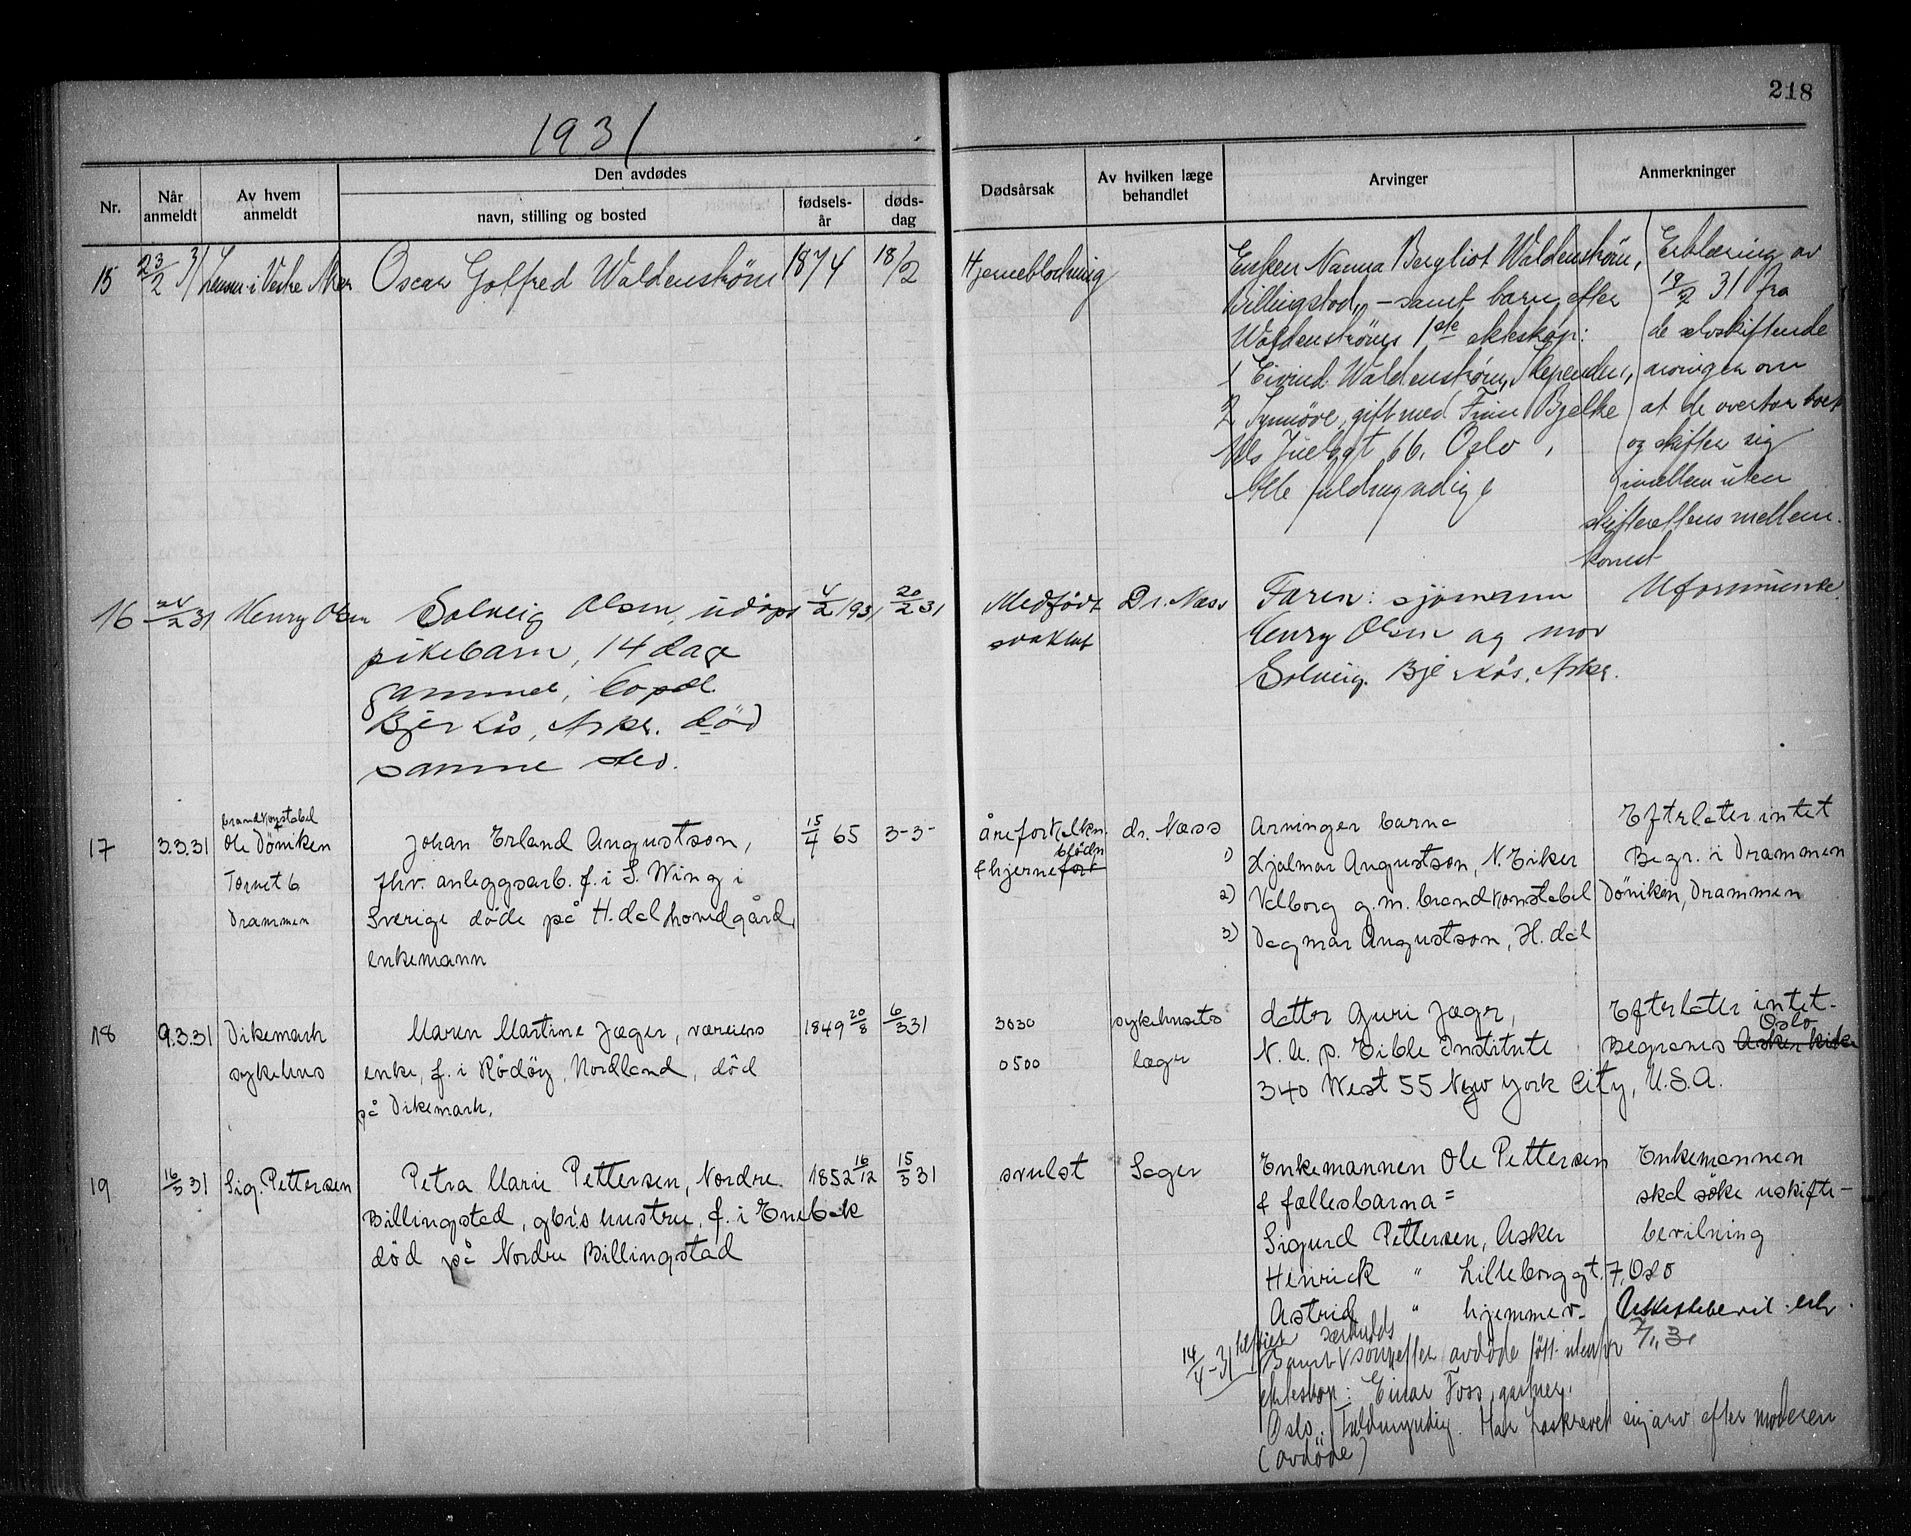 218
1931
Nr.
Når anmeldt
Av hvem anmeldt
Den avdødes
navn, stilling og bosted
fødselsår
dødsdag
Dødsårsak
Av hvilken læge behandlet
Arvinger
Anmerkninger
15
23/2 31
Lensm. i Vestre Aker
Oscar Gotfred Waldenstrøm
1874
18/2
Hjerneblødning
Enken Nanna Bergliot Waldenstrøm,
Billingstad, - samt barn efter
Waldenstrøms 1ste ekteskap:
1 Eivind Waldenstrøm, Slependen,
2 Synnöve, gift med Finn Bjelke
Nils Juelsgt 66, Oslo,
Alle fuldmyndige
Erklæring av
19/2 31 fra
de selvskiftende
arvinger om
at de overtar boet
og skifter sig
imellem uten
skifterettens mellem-
komst
16
24/2 31
Henry Olsen
Solveig Olsen, udøpt
pikebarn, 14 dage
gammel,
Bjerkås, Asker. død
samme sted.
4/2 1931
20/2 31
Medfödt
svakhet
Dr. Næss
Faren: sjømann
Henry Olsen og mor
Solveig. Bjerkås, Asker.
Uformuende.
17
3.3.31
brandkonstabel
Ole Döniken
Tornet 6
Drammen
Johan Erland Augustson,
fhv. anleggsarb. f. i S. Wing i
Sverige döde på H.dal hovedgård,
enkemann
15/4 65
3-3-
åreforkalkn.
& hjerneblødn
fort
dr. Næss
Arvinger barna
1) Hjalmar Augustson, N. Eiker
2) Valborg g.m. brandkonstabel Döniken, Drammen
3) Dagmar Augustson, H. dal
Efterlater intet
Begr. i Drammen
18
9.3.31
Dikemark
sykehus
Maren Martine Jæger, væreiers
enke, f. i Rödöy, Nordland, död
på Dikemark.
1849 20/8
6/3 31
3030
0500
sykehusets
læger
datter Guri Jæger,
N. U. p. Bible Institute
340 West 55 New York City, U.S.A.
Efterlater intet-
Begraves Oslo
Asker kirke
19
16/3 31
Sig. Pettersen
Petra Marie Pettersen, Nordre
Billingstad, gbr's hustru, f. i Enebak
död på Nordre Billingstad
1852 16/12
15/3 31
svulst
Sager
Enkemannen Ole Pettersen
& fællesbarna =
Sigurd Pettersen, Asker
Henrick " Lilleborggt. 7, Oslo
Astrid " hjemmev.
Enkemannen
skal söke uskifte-
bevilning
14/4 - 31 tilföiet
Samt særkulds sön efter avdöde födt utenfor
ekteskap: Einar Foss, gartner,
Oslo. Fuldmyndig. Har fraskrevet sig arv efter moderen
(avdöde)